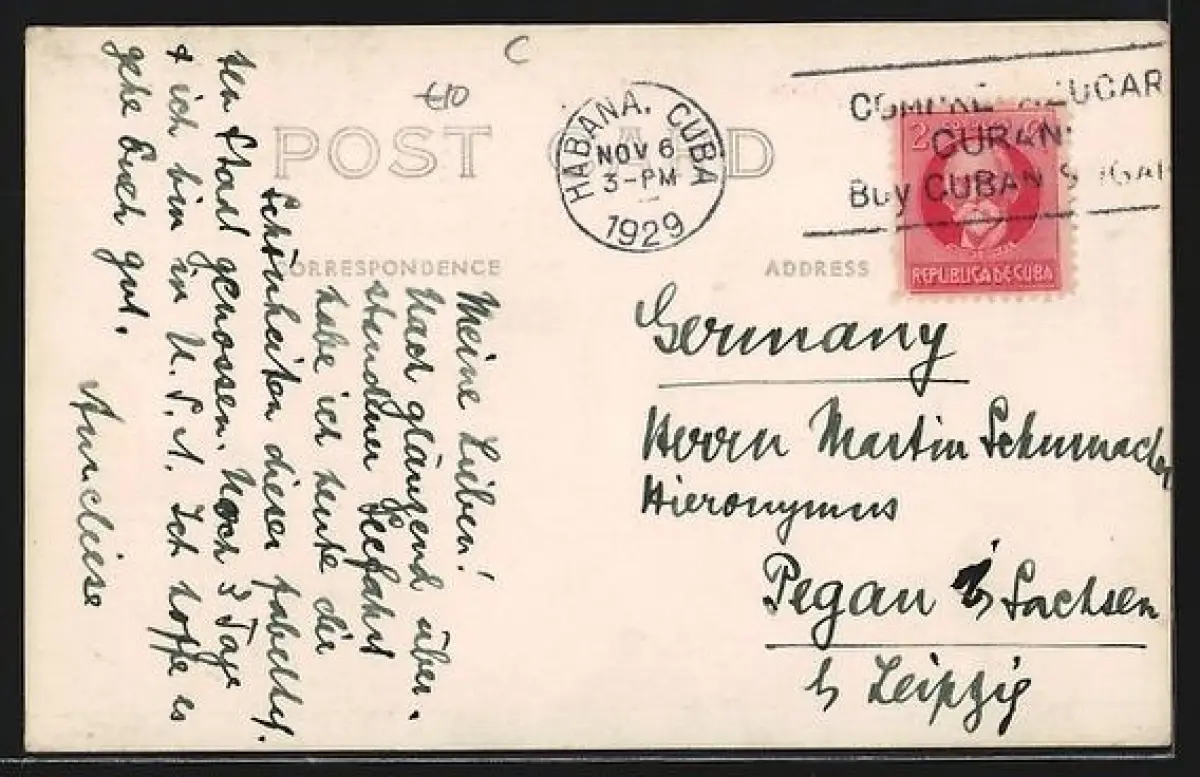 C
€10
POST CARD
HABANA. CUBA
NOV 6
3-PM
1929
COMPRE AZUCAR
CUBANA
BUY CUBAN SUGAR
2 2
REPUBLICA DE CUBA
CORRESPONDENCE
ADDRESS
Meine Lieben!
Nach glänzend über-
standener Seefahrt
habe ich heute die
Schönheiten dieser fabelhaf-
ten Stadt genossen. Noch 3 Tage
& ich bin in U.S.A. Ich hoffe es
gehe Euch gut.
Anneliese
Germany
Herrn Martin Schumacher
Hieronymus
Pegau i/ Sachsen
b/ Leipzig